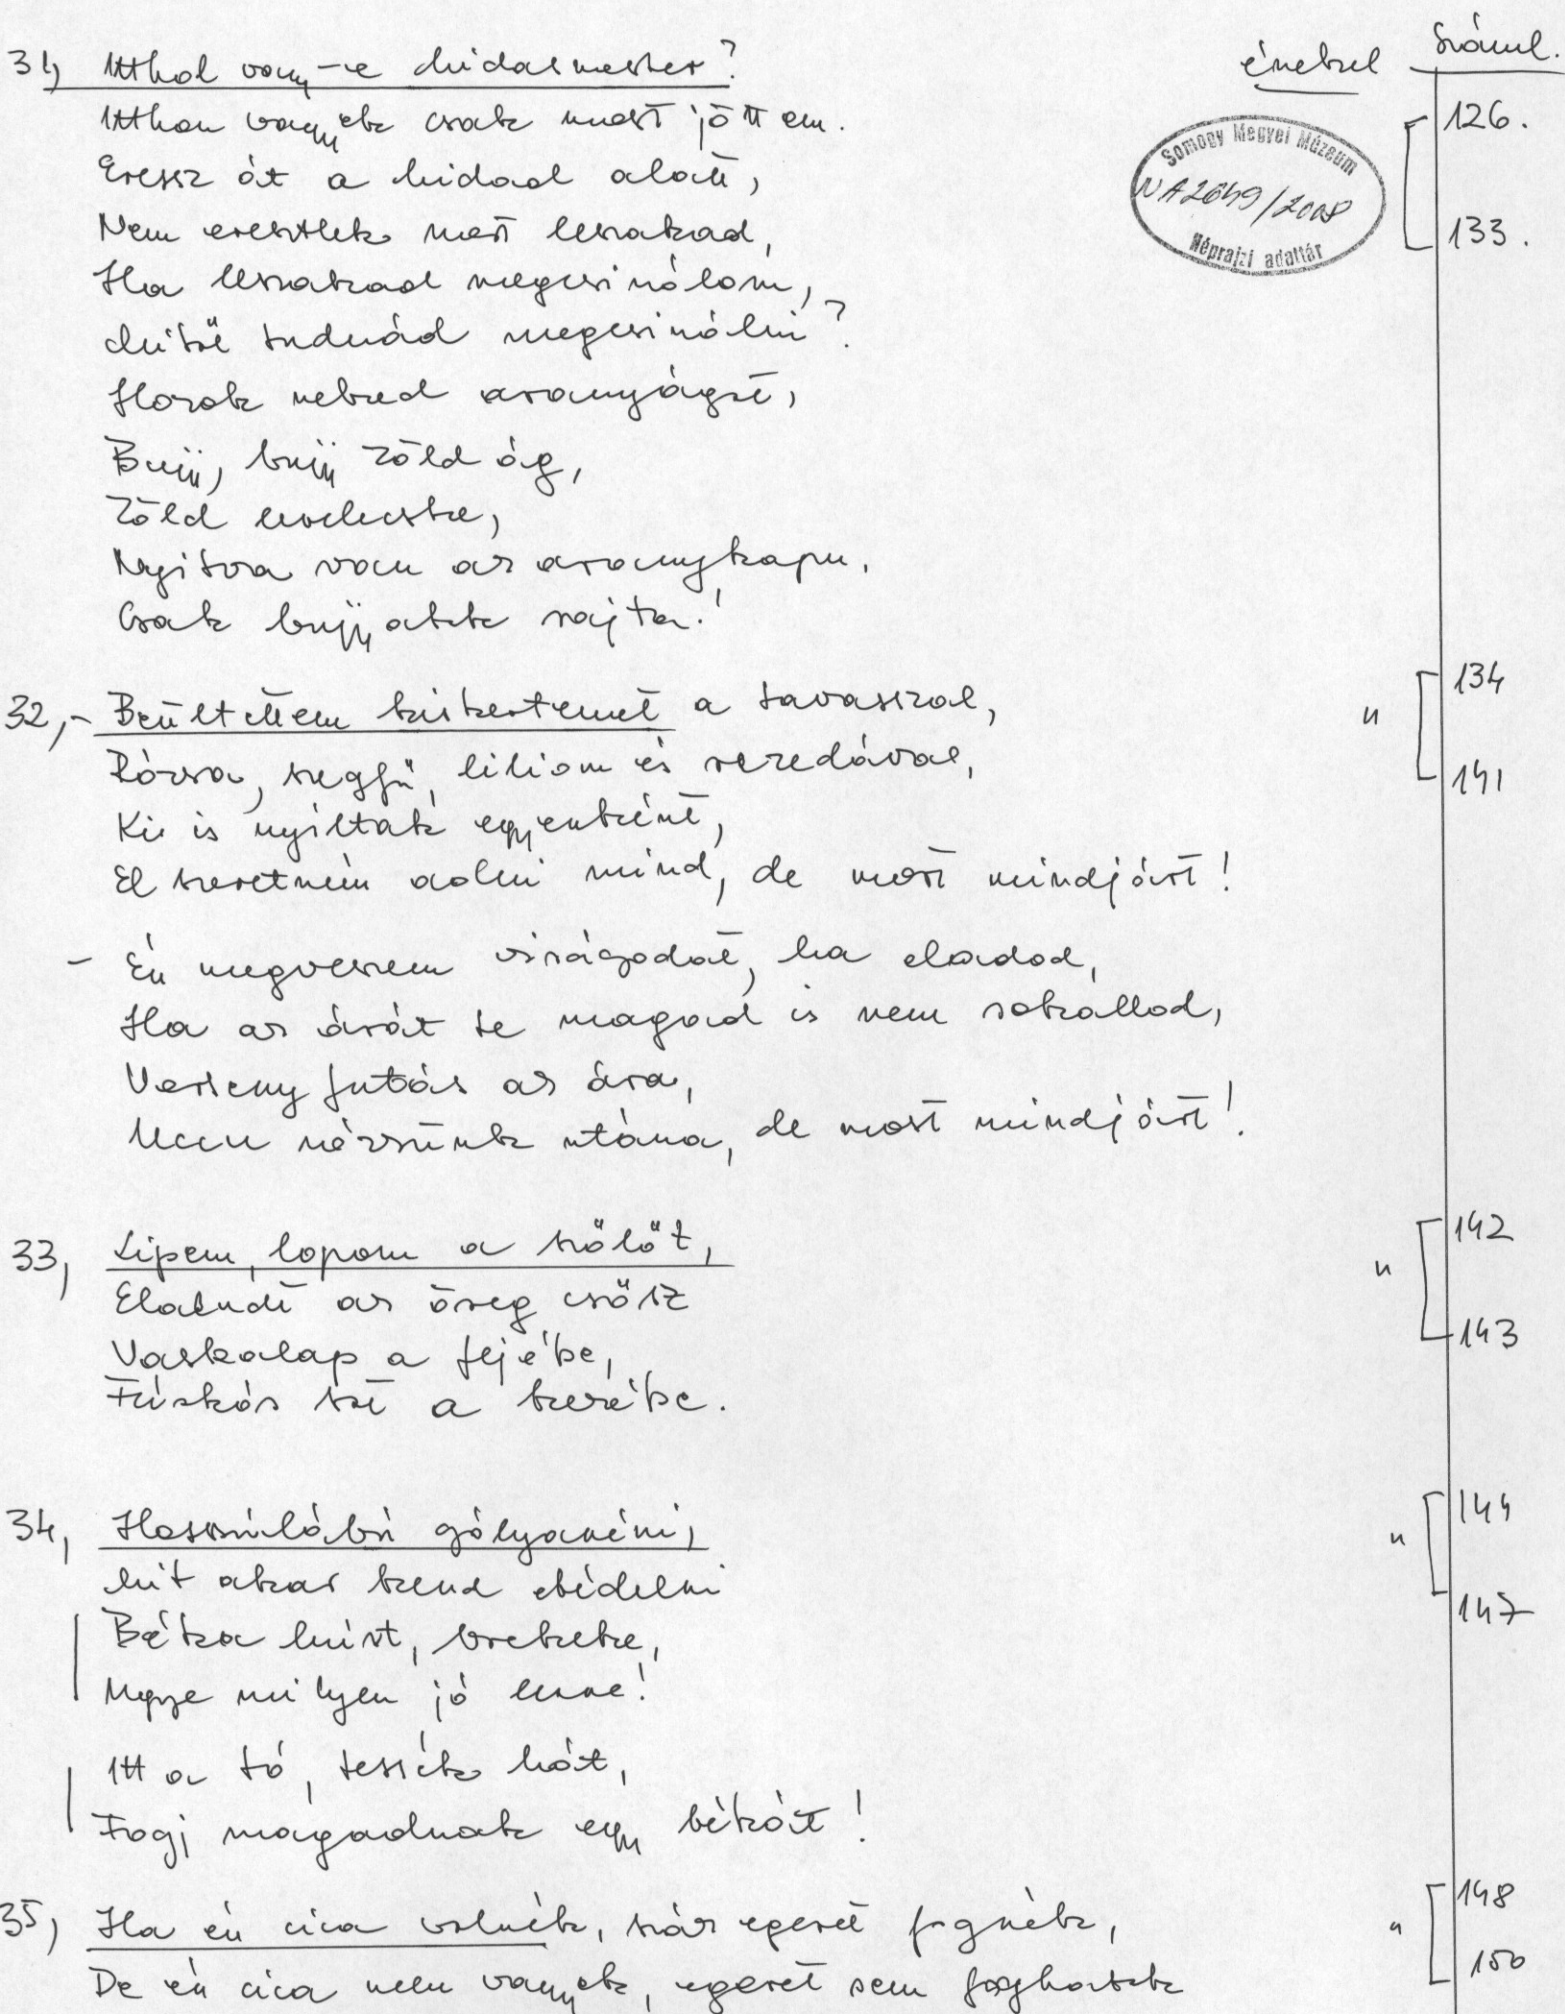 énekel száml.
31, Itthol vagy-e hidasmester?
Itthon vagyok csak most jöttem.
Eressz át a hidad alatt,
Nem eresztlek mert leszakad,
Ha leszakad megcsinálom,
Miből tudnád megcsinálni?
Hozok neked aranyágat,
Bujj, bujj zöld ág,
Zöld levelecske,
Nyitva van az aranykapu,
Csak bujjatok rajta!
126.
133.
Somogy Megyei Múzeum
NA 2649/2008
Néprajzi adattár
32,- Beültettem kiskertemet a tavasszal,
Rózsa, szegfű, liliom és rezedával,
Ki is nyíltak egyenként,
El szeretném adni mind, de most mindjárt!
- Én megveszem virágodat, ha eladod,
Ha az árát te magad is nem sokallod,
Verseny futás az ára,
Uccu nézzünk utána, de most mindjárt!
" 134
141
33, Lipem, lopom a szőlőt,
Elaludt az öreg csősz
Vaskalap a fejébe,
Furkós bot a kezébe.
" 142
143
34, Hosszúlábú gólyanéni,
Mit akar kend ebédelni
Béka húst, brekeke,
Ugye milyen jó lenne!
Itt a tó, tessék hát,
Fogj magadnak egy békát!
" 144
147
35, Ha én cica volnék, száz egeret fognék,
De én cica nem vagyok, egeret sem foghatok
" 148
150